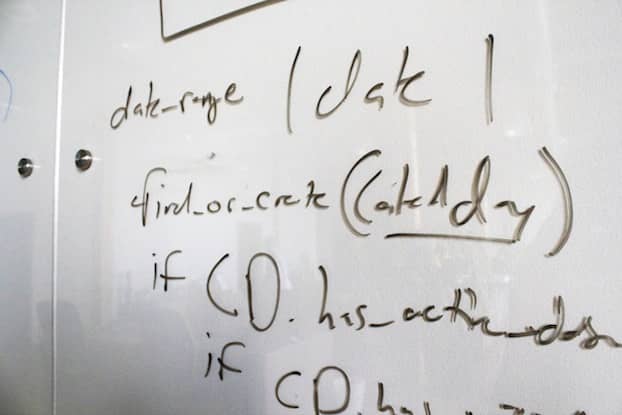 date_range |date|
find_or_create (Catch day)
if CD.has_active_
if CD.has_